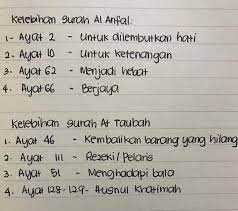 Kelebihan surah Al Anfal:
1- Ayat 2 - Untuk dilembutkan hati
2- Ayat 10 - Untuk ketenangan
3- Ayat 62 - Menjadi hebat
4. Ayat 66 - Berjaya
Kelebihan surah At taubah
1. Ayat 46 - Kembalikan barang yang hilang
2. Ayat 111 - Rezeki/Pelaris
3. Ayat 51 - Menghadapi bala
4. Ayat 128-129- Husnul Khatimah